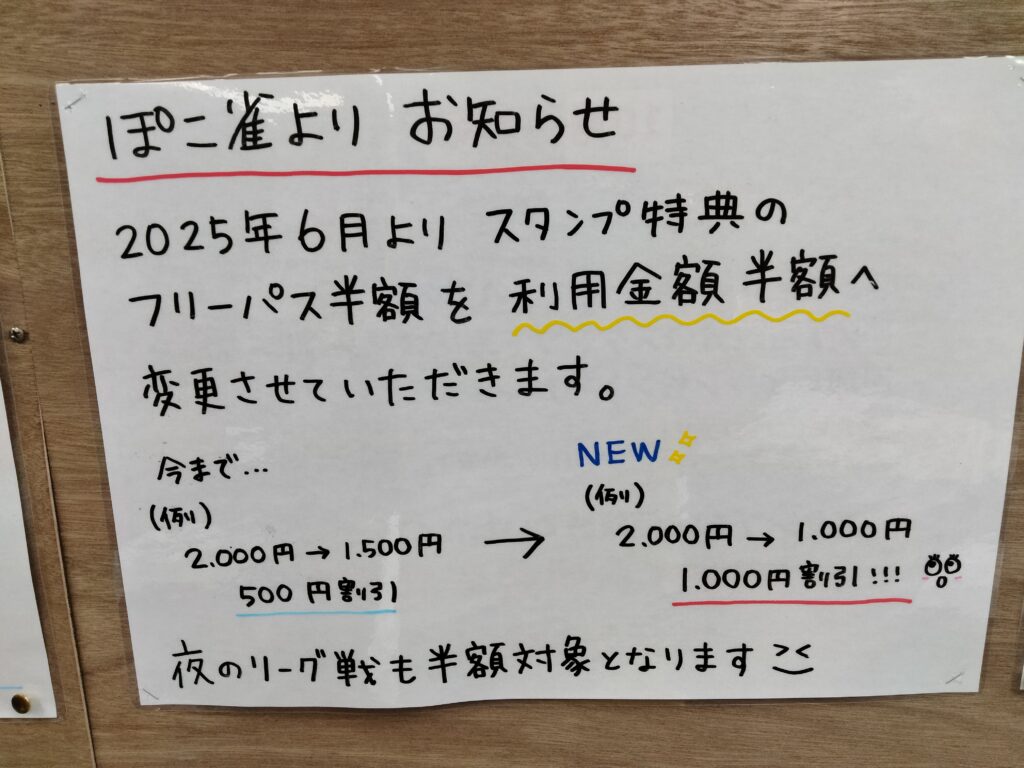 ぽこ雀より お知らせ
2025年6月より スタンプ特典の
フリーパス半額を 利用金額 半額へ
変更させていただきます。
今まで…
(例)
2.000円→1.500円
500円割引
→
NEW
(例)
2.000円→1.000円
1.000円割引!!!
夜のリーグ戦も半額対象となります